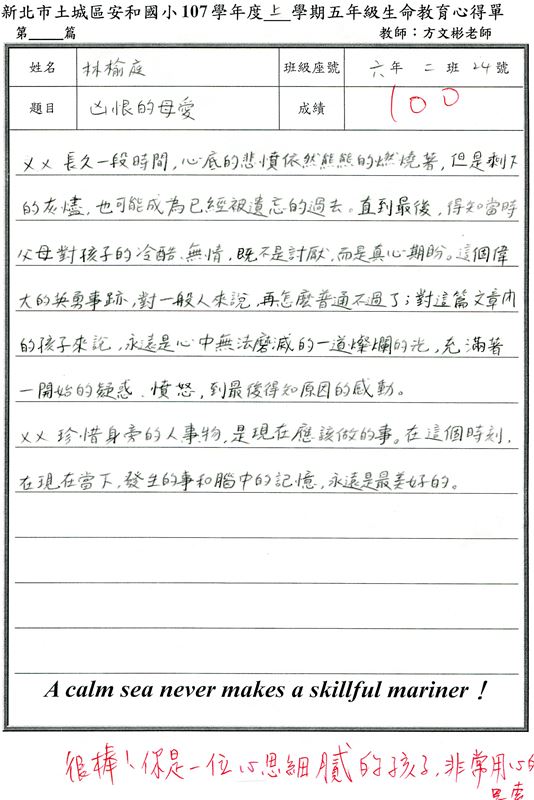 新北市土城區安和國小107學年度上學期五年級生命教育心得單
第_____篇 教師：方文彬老師
姓名 林榆庭 班級座號 六年二班24號
題目 凶恨的母愛 成績 100
××長久一段時間，心底的悲憤依然熊熊的燃燒著，但是剩下
的灰燼，也可能成為已經被遺忘的過去。直到最後，得知當時
父母對孩子的冷酷、無情，既不是討厭，而是真心期盼。這個偉
大的英勇事跡，對一般人來說，再怎麼普通不過了；對這篇文章內
的孩子來說，永遠是心中無法磨滅的一道燦爛的光，充滿著
一開始的疑惑、憤怒，到最後得知原因的感動。
××珍惜身旁的人事物，是現在應該做的事。在這個時刻，
在現在當下，發生的事和腦中的記憶，永遠是最美好的。
A calm sea never makes a skillful mariner！
很棒！你是一位心思細膩的孩子，非常用心的